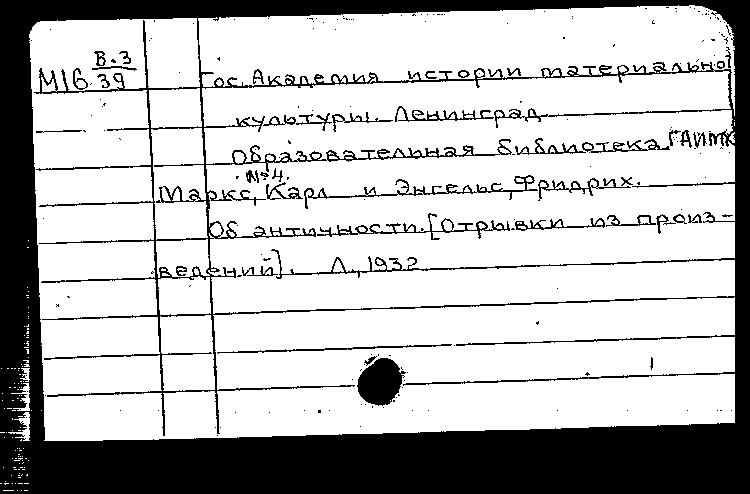 В.3
М16 39 Гос. Академия истории материально
культуры. Ленинград
Образовательная библиотека ГАИМК
№4.
Маркс, Карл и Энгельс, Фридрих.
Об античности. [Отрывки из произ-
ведений]. Л., 1932